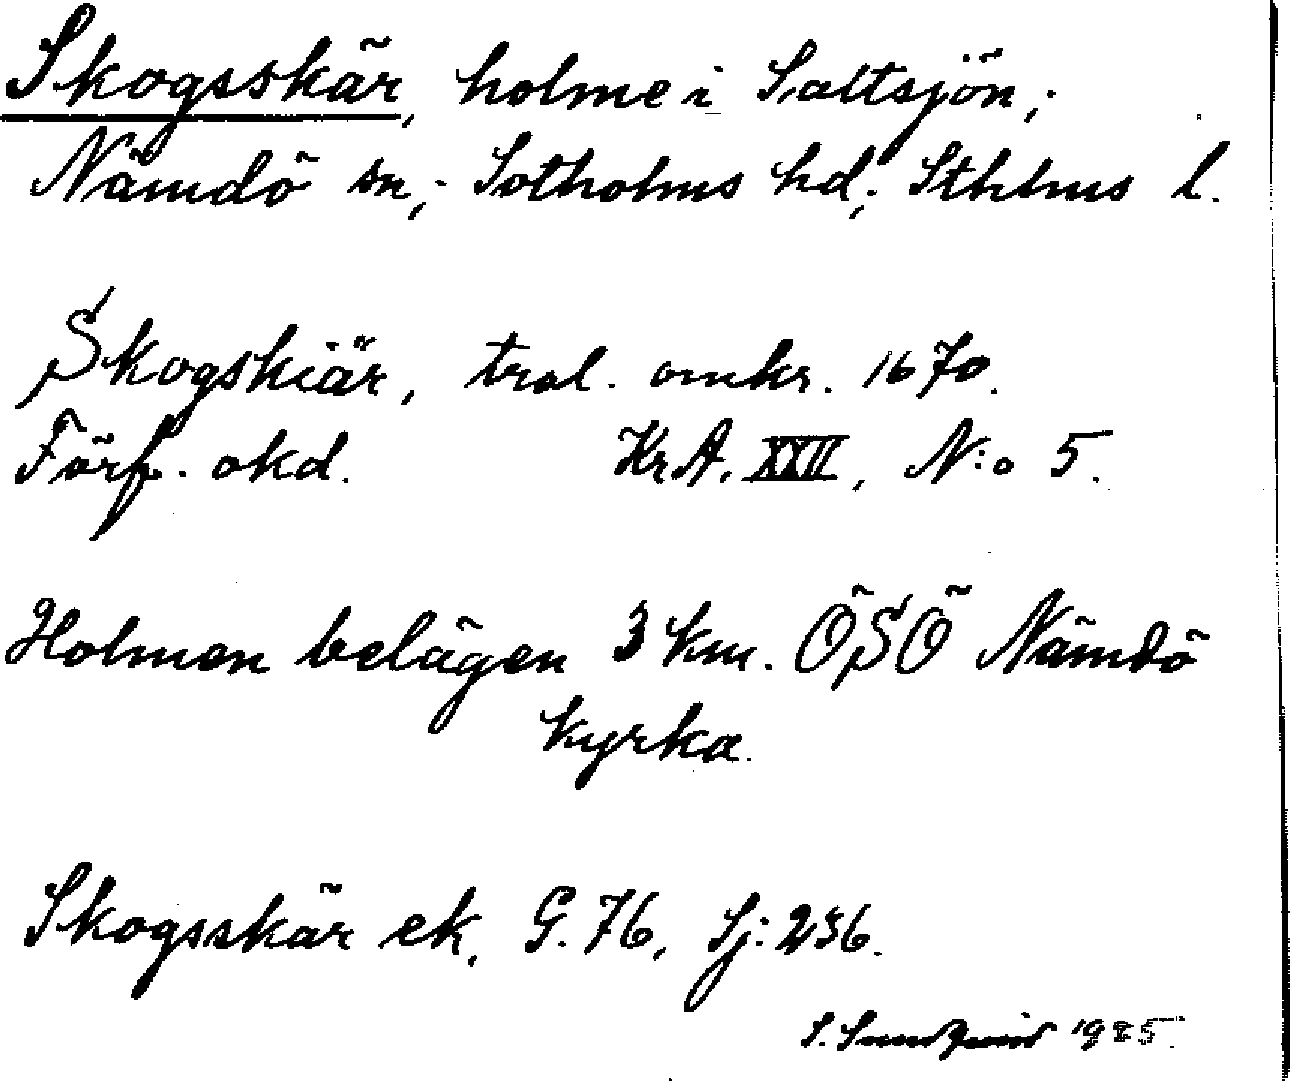 Skogsskär, holme i Saltsjön,;
Nämdö sn,; Sotholms hd,; Sthlms l.
Skogskiär, trol. omkr. 1670.
Förf. okd. KrA. XXII, N:o 5.
Holmen belägen 3 km. ÖSÖ Nämdö
kyrka.
Skogsskär ek, G. 76, Sj: 236.
S. Sundquist 1925.